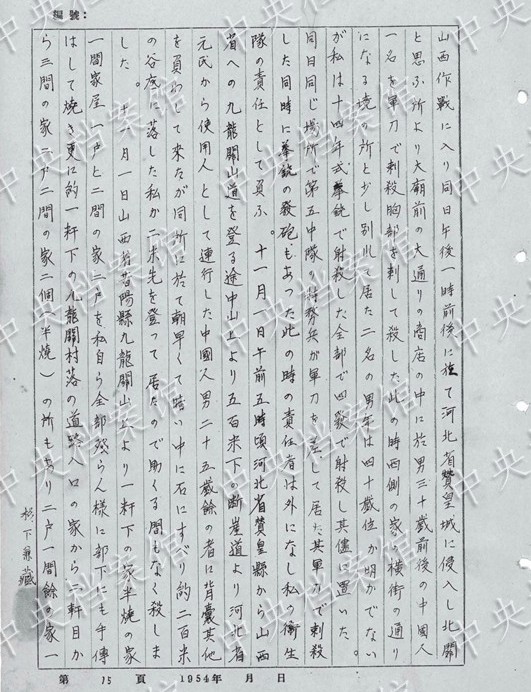 編號:
山西作戦に入り同日午後一時前後に於て河北省賛皇城に侵入し北関
と思ふ所より大廟前の大通りの商店の中に於男三十歳前後の中國人
一名を軍刀で刺殺胸部を刺して殺した此の時西側の家から横街の通り
になる境の所と少し別れて居た二名の男年は四十歳位か明かでない
が私は十四年式拳銃で射殺した全部で四發で射殺し其儘に置いた。
同日同じ場所で第五中隊の特務兵が軍刀を差して居た其軍刀で刺殺
した同時に拳銃の發砲もあった此の時の責任者は外になし私の衛生
隊の責任として負ふ。十一月一日午前五時頃河北省賛皇縣から山西
省への九龍関山道を登る途中山上より五百米下の断崖道より河北省
元氏から使用人として連行した中國人男二十五歳餘の者に背嚢其他
を負わして来たが同所に於て朝早くて暗い中に石にすべり約二百米
の谷底に落した私が二米先を登って居たので助くる間もなく殺しま
した。十一月一日山西省昔陽縣九龍関山上より一粁下の家半焼の家
一間家屋一戸と二間の家二戸を私自ら全部殘ら人様に部下にも手傳
はして焼き更に約一粁下の九龍関村落の道路入口の家から二軒目か
ら三間の家二戸二間の家二個(半焼)の所もあり二戸一間餘の家一
杉下兼蔵
第 15 頁 1954年 月 日
中央档案馆